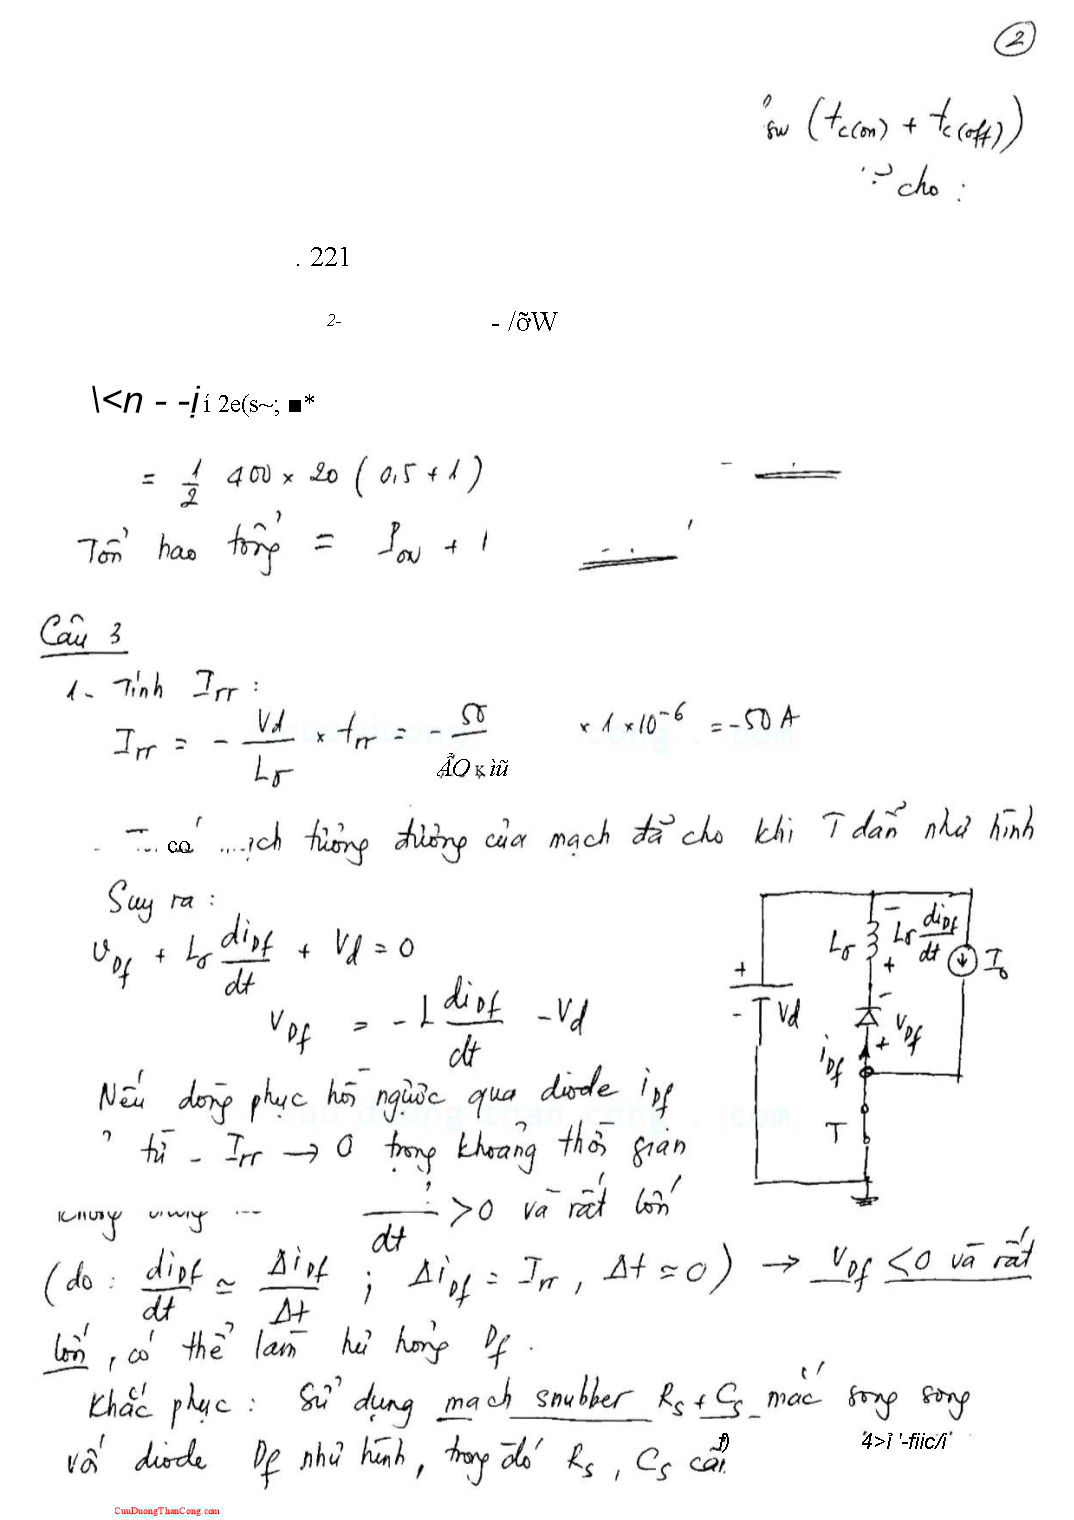 2
sw (tc(on) + tc(off))
cho :
. 221
2- - /õW
\<n - -ị í 2e(s~; ■*
= 1/2 400 × 20 ( 0,5 + 1 )
Tổn hao tổng = Pon + 1
Câu 3
1- Tính Irr :
Irr = - Vd/Lσ × trr = × 1 × 10^-6 = -50 A
co mạch tương đương của mạch đã cho khi T dẫn như hình
Suy ra :
vDf + Lσ diDf/dt + Vd = 0
vDf = - L diDf/dt - Vd
Nếu dòng phục hồi ngược qua diode iDf
từ - Irr → 0 trong khoảng thời gian
dt > 0 và rất lớn
(do : diDf/dt ≃ ΔiDf/Δt ; ΔiDf = Irr , Δt ≃ 0 ) → vDf < 0 và rất
lớn , có thể làm hư hỏng Df .
Khắc phục : Sử dụng mạch snubber Rs + Cs mắc song song
với diode Df như hình , trong đó Rs , Cs cần
4>ì '-fiic/i'
+
-
Vd
Lσ
-
Lσ diDf/dt
+
Io
-
vDf
+
iDf
T
CuuDuongThanCong.com